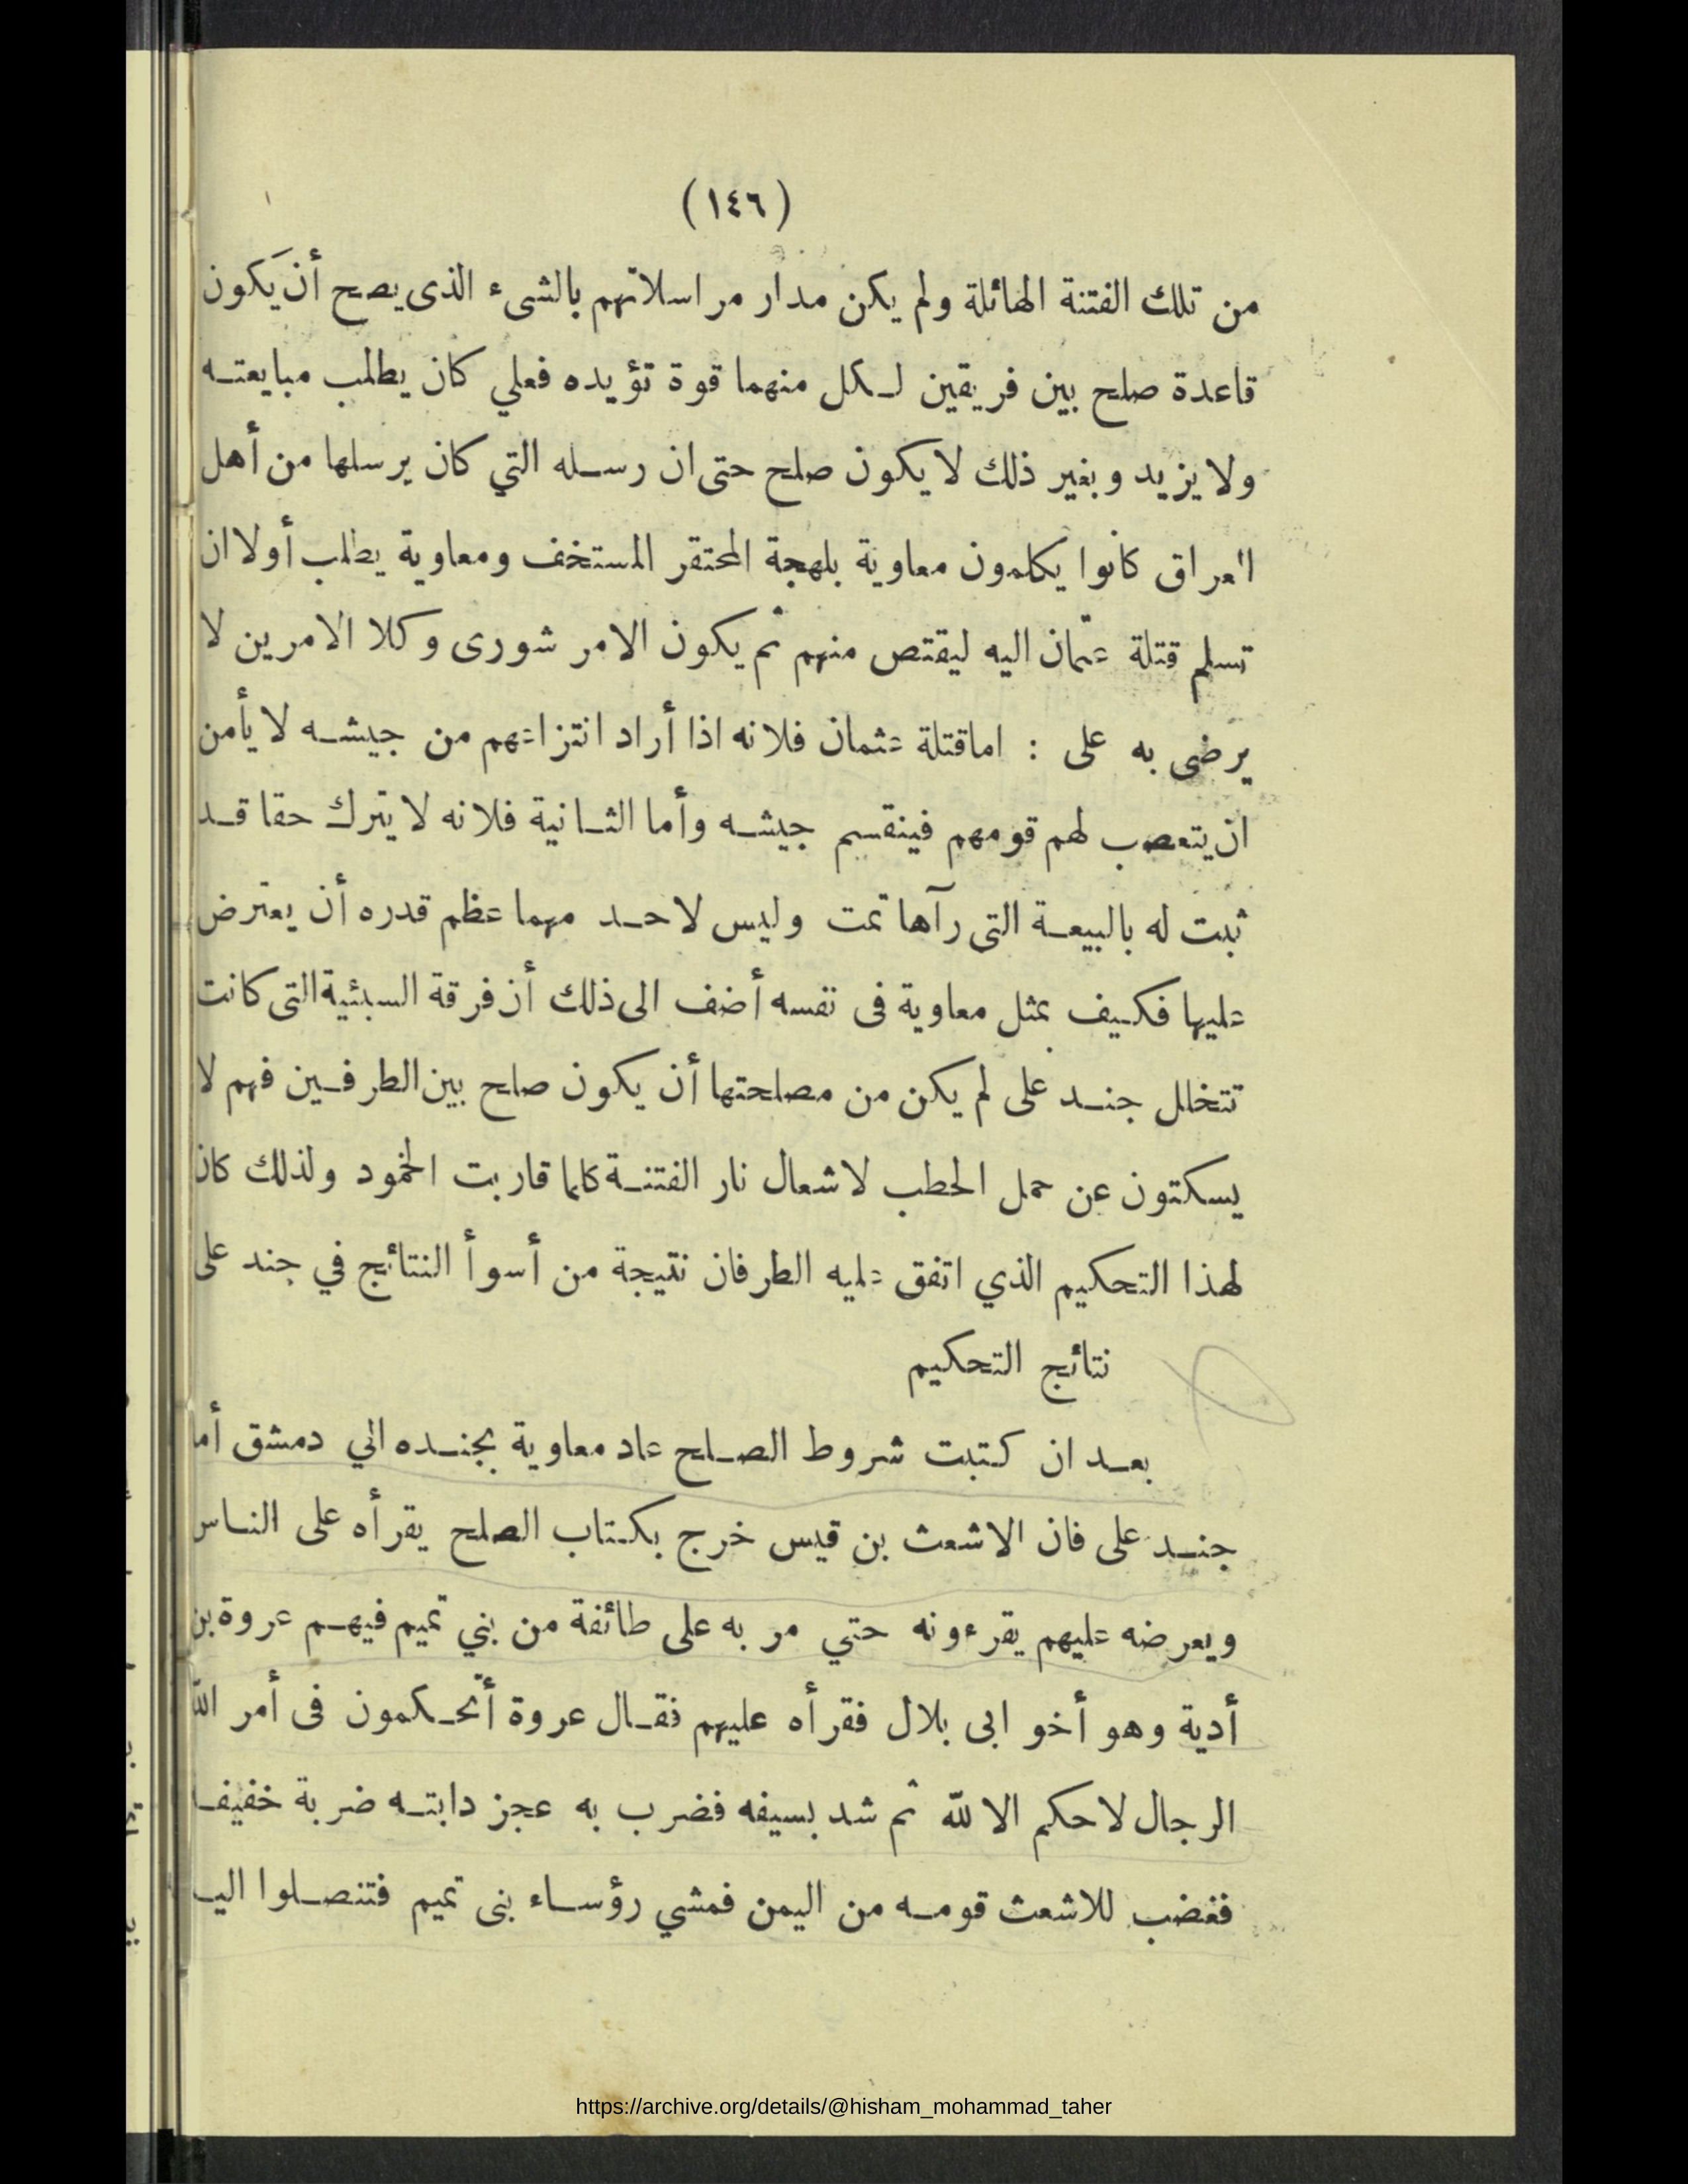 (١٤٦)
من تلك الفتنة الهائلة ولم يكن مدار مراسلاتهم بالشىء الذى يصح أن يكون
قاعدة صلح بين فريقين لكل منهما قوة تؤيده فعلي كان يطلب مبايعته
ولا يزيد وبغير ذلك لا يكون صلح حتى ان رسله التي كان يرسلها من أهل
العراق كانوا يكلمون معاوية بلهجة المحتقر المستخف ومعاوية يطلب أولا ان
تسلم قتلة عثمان اليه ليقتص منهم ثم يكون الامر شورى وكلا الامرين لا
يرضى به على : اما قتلة عثمان فلانه اذا أراد انتزاعهم من جيشه لا يأمن
ان يتعصب لهم قومهم فينقسم جيشه وأما الثانية فلانه لا يترك حقا قد
ثبت له بالبيعة التى رآها تمت وليس لاحد مهما عظم قدره أن يعترض
عليها فكيف بمثل معاوية فى نفسه أضف الى ذلك أن فرقة السبئية التى كانت
تتخلل جند على لم يكن من مصلحتها أن يكون صلح بين الطرفين فهم لا
يسكتون عن حمل الحطب لاشعال نار الفتنة كلما قاربت الخمود ولذلك كان
لهذا التحكيم الذي اتفق عليه الطرفان نتيجة من أسوأ النتائج في جند على
نتائج التحكيم
بعد ان كتبت شروط الصلح عاد معاوية بجنده الي دمشق أما
جند على فان الاشعث بن قيس خرج بكتاب الصلح يقرأه على الناس
ويعرضه عليهم يقرءونه حتي مر به على طائفة من بني تميم فيهم عروة بن
أدية وهو أخو ابى بلال فقرأه عليهم فقال عروة أتحكمون فى أمر الله
الرجال لا حكم الا لله ثم شد بسيفه فضرب به عجز دابته ضربة خفيفـ
فغضب للاشعث قومه من اليمن فمشي رؤساء بنى تميم فتنصلوا اليـ
https://archive.org/details/@hisham_mohammad_taher